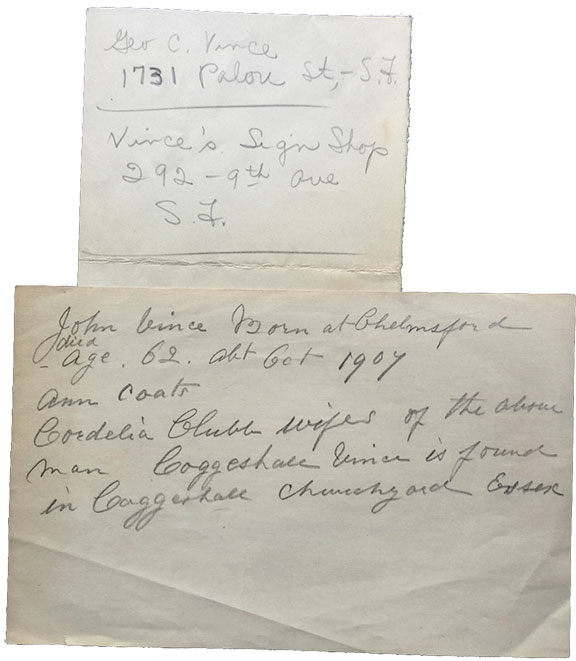 Geo C. Vince
1731 Palou St, - S.F.
Vince's Sign Shop
292 - 9th Ave
S.F.
John Vince Born at Chelmsford
died
- age. 62. abt Oct 1907
Ann Coats
Cordelia Clubb wifes of the above
man Coggeshall Vince is found
in Coggeshall Churchyard Essex